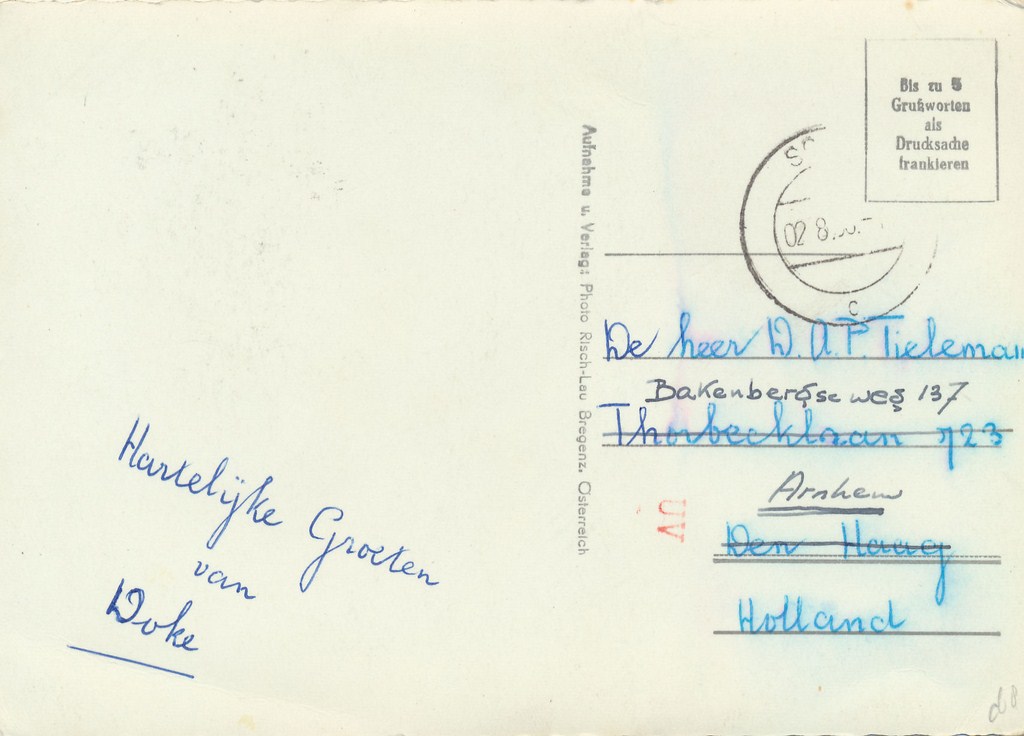 Bis zu 5
Grußworten
als
Drucksache
frankieren
02 8.
c
Aufnahme u. Verlag: Photo Risch-Lau Bregenz, Österreich
De heer W. A. P. Tieleman
Bakenbergse weg 137
Thorbecklaan 723
Arnhem
Den Haag
Holland
Hartelijke Groeten
van
Woke